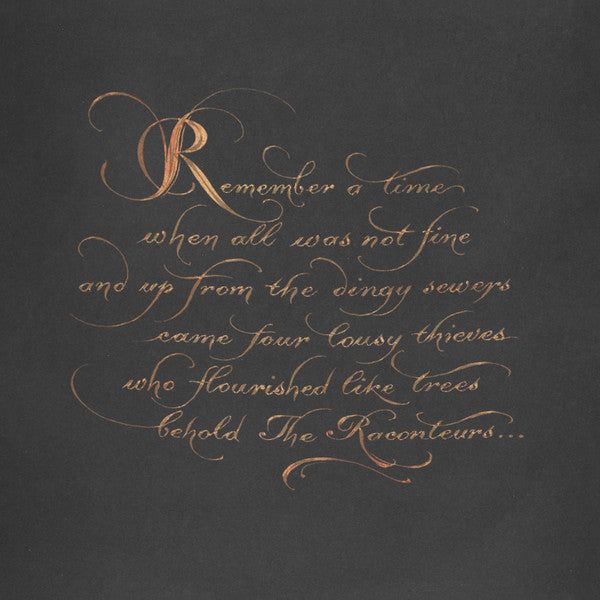 Remember a time
when all was not fine
and up from the dingy sewers
came four lousy thieves
who flourished like trees
behold The Raconteurs...